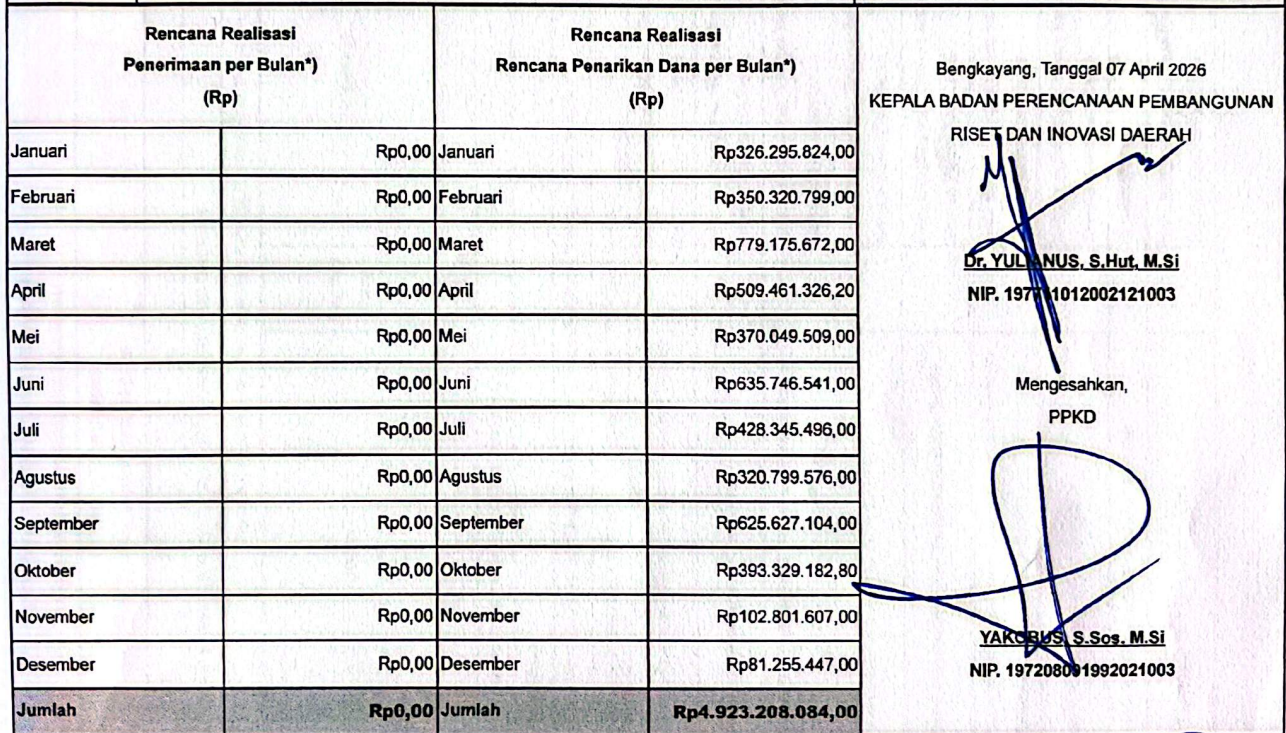 Rencana Realisasi
Penerimaan per Bulan*)
(Rp)
Rencana Realisasi
Rencana Penarikan Dana per Bulan*)
(Rp)
Januari Rp0,00 Januari Rp326.295.824,00
Februari Rp0,00 Februari Rp350.320.799,00
Maret Rp0,00 Maret Rp779.175.672,00
April Rp0,00 April Rp509.461.326,20
Mei Rp0,00 Mei Rp370.049.509,00
Juni Rp0,00 Juni Rp635.746.541,00
Juli Rp0,00 Juli Rp428.345.496,00
Agustus Rp0,00 Agustus Rp320.799.576,00
September Rp0,00 September Rp625.627.104,00
Oktober Rp0,00 Oktober Rp393.329.182,80
November Rp0,00 November Rp102.801.607,00
Desember Rp0,00 Desember Rp81.255.447,00
Jumlah Rp0,00 Jumlah Rp4.923.208.084,00
Bengkayang, Tanggal 07 April 2026
KEPALA BADAN PERENCANAAN PEMBANGUNAN
RISET DAN INOVASI DAERAH
Dr, YULIANUS, S.Hut, M.Si
NIP.
Mengesahkan,
PPKD
YAKOBUS, S.Sos, M.Si
NIP. 197208091992021003